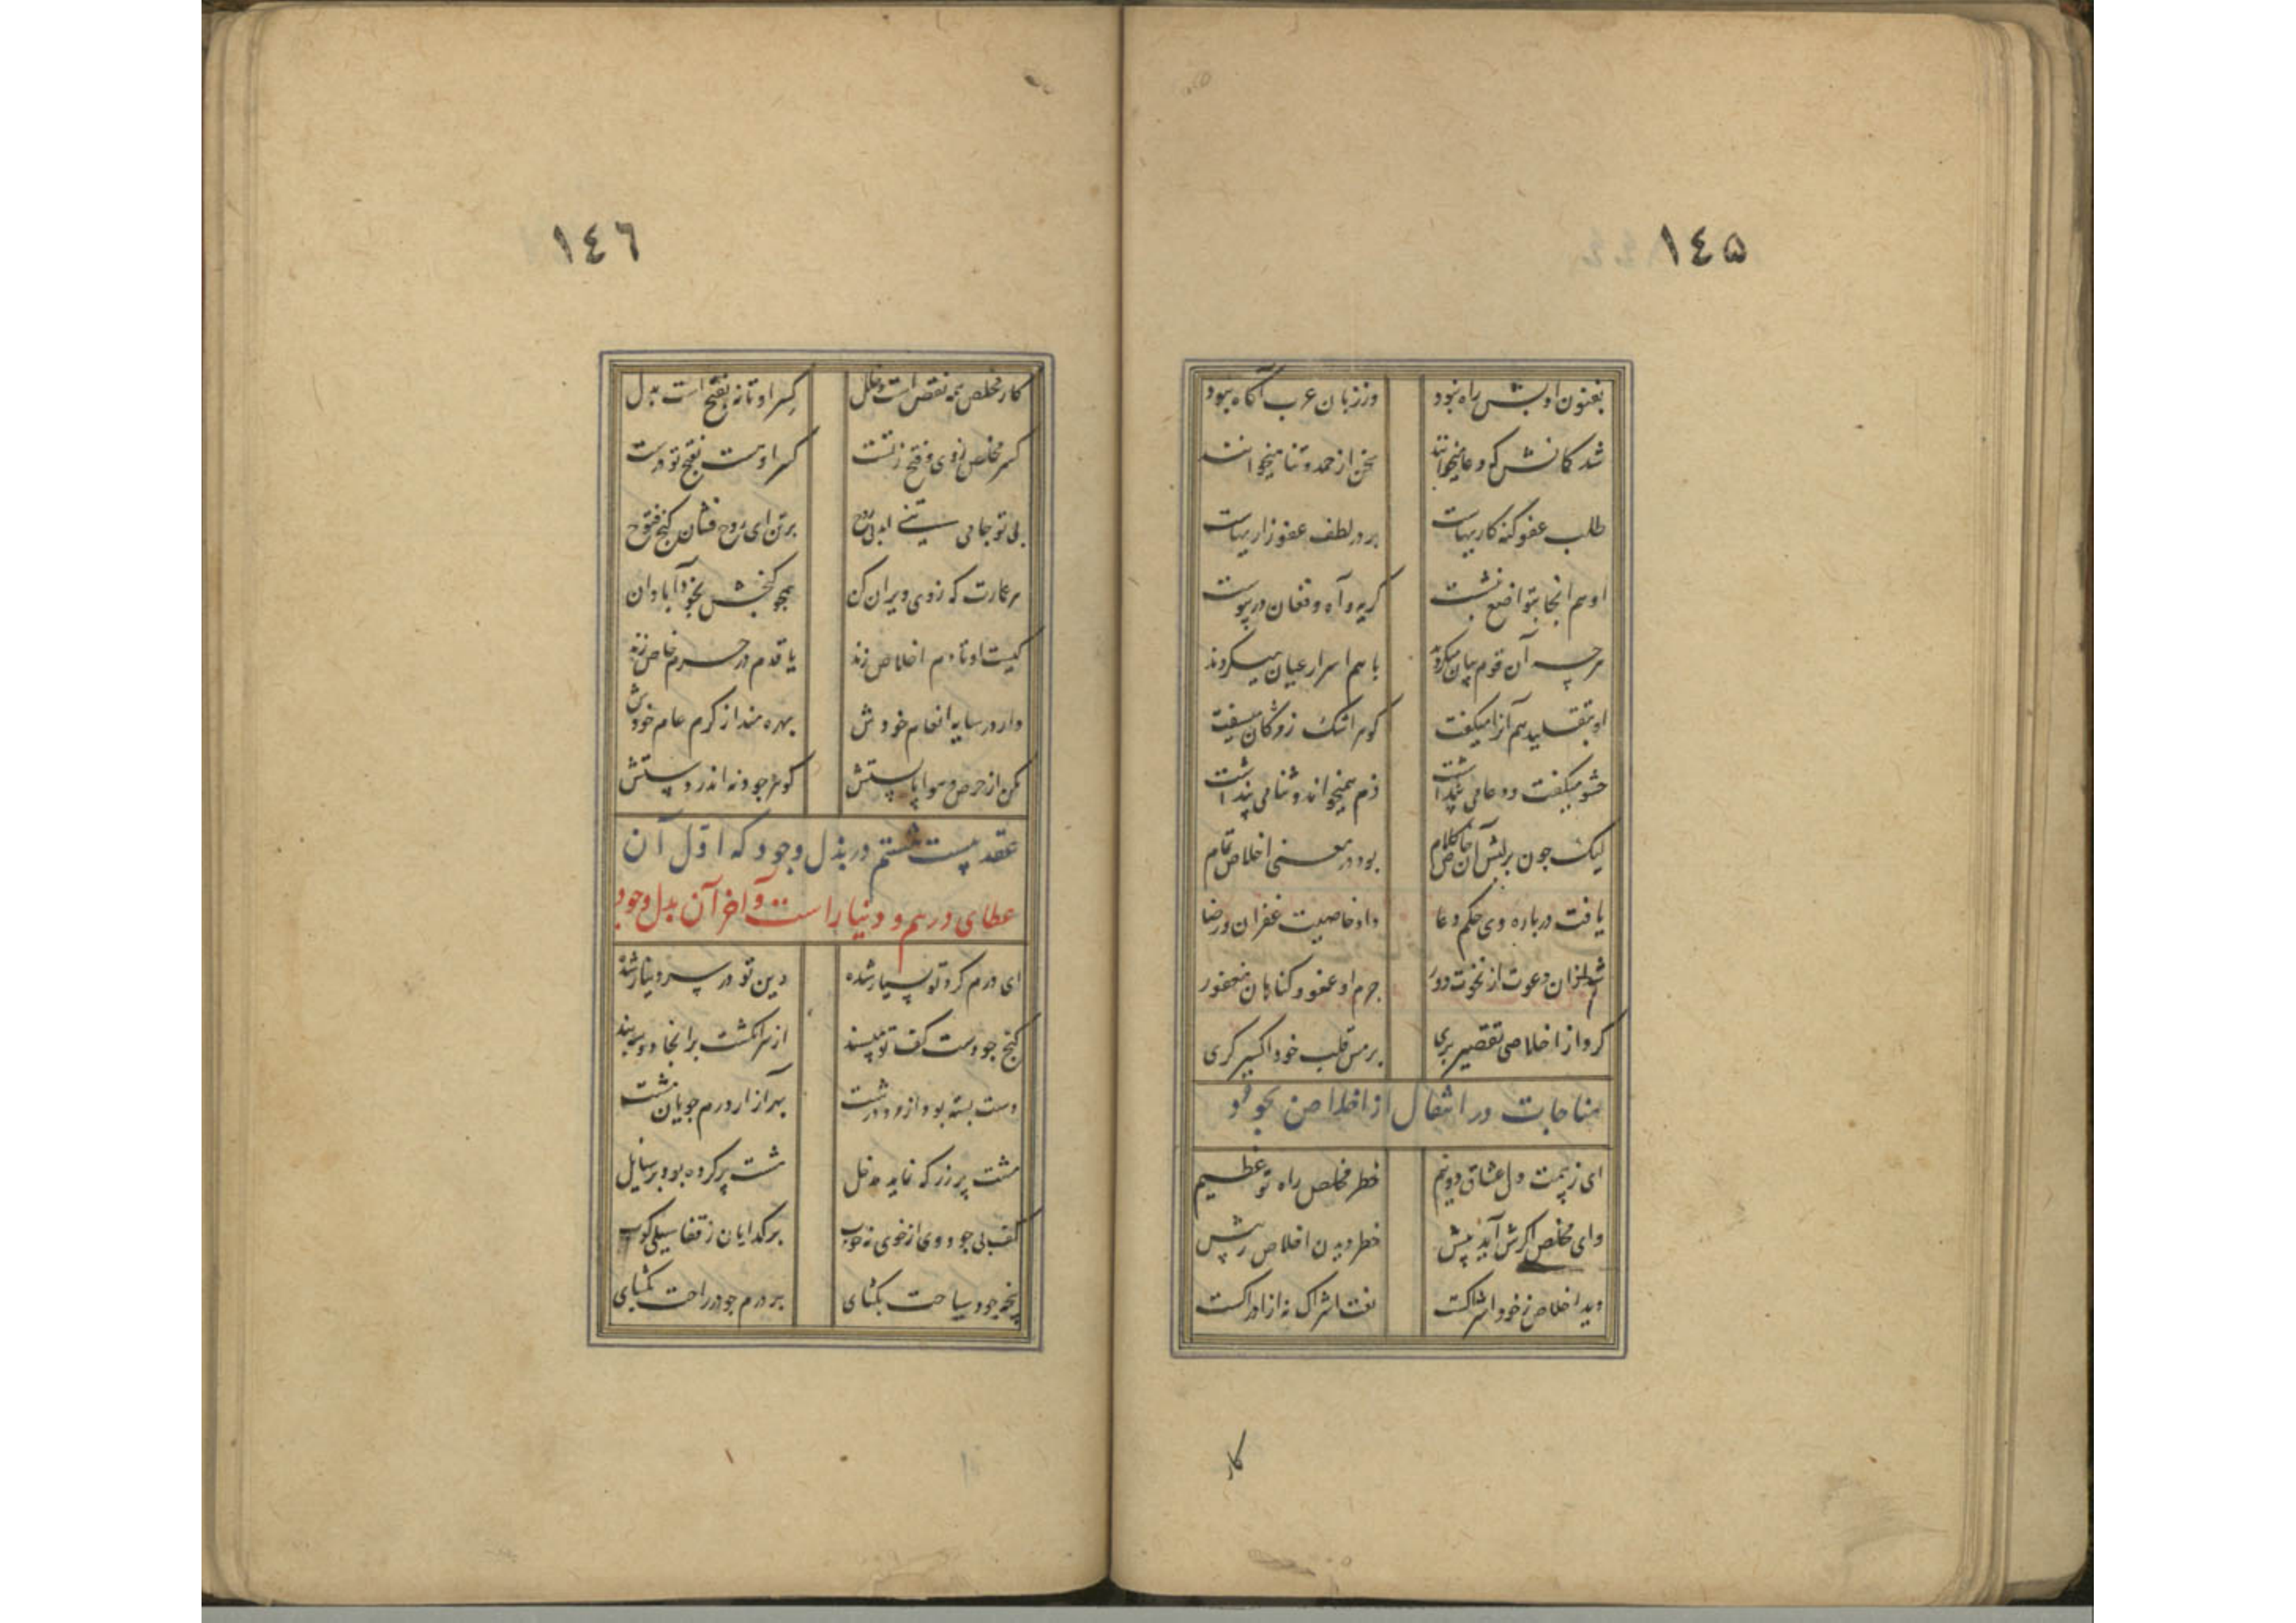 ١٤۵
بفنون ادبش راه نبود وز زبان عرب آگاه نبود
شد گمانش که دعا میخوانند سخن از حمد و ثنا میخوانند
طلب عفو گنه کاریهاست بر در لطف عفو زاریهاست
او هم آنجا بتواضع بنشست گریه و آه و فغان در پیوست
هر چه آن قوم بیان میکردند با هم اسرار عیان میکردند
او بتقلید هم آنرا میگفت گوهر اشک ز مژگان میسفت
حشو میگفت و دعا می پنداشت ذم همیخواند و ثنا می پنداشت
لیک چون بر لبش آن خاص کلام بود در معنی اخلاص تمام
یافت در باره وی حکم دعا داد خاصیت غفران و رضا
شد از ان دعوت از نخوت دور جرم او عفو و گناهان مغفور
کرد از اخلاصی تقصیر بری بر مس قلب خود اکسیر گری
مناجات در انتقال از اخلاص بجود
ای ز بیمت دل عشاق دو نیم خطر مخلص راه تو عظیم
وای مخلص اگرش آید پیش خطر دیدن اخلاص ز خویش
دید اخلاص ز خود اشراکست نفت اشراک نه از ادراکست
کار
١٤٦
کار مخلص همه نقص است و خلل کسر او تا نه بفتح است بدل
کسر مخلص ز وی و فتح ز تست کسر او هست بفتح تو درست
بی تو جامی ست تنی بی روح بر تن ای روح فشان گنج فتوح
هر عمارت که ز وی ویران کن همچو گنجش بخود آبادان
کیست او تا دم اخلاص زند یا قدم در حرم خاص زند
دار در سایه انعام خودش بهره مند از کرم عام خودش
مکن از حرص و هوا پا بستش گوهر جود نه اندر دستش
عقد بیست هشتم در بذل وجود که اول آن
عطای درهم و دنیا راست و آخر آن بدل وجود
ای درم گرد تو بسیار شده دین تو در سر دینار شده
گنج جودست کف تو مپسند از سر انگشت بر انجا دو سه بند
دست بسته بود از و درشت بهر آزار درم جویان مشت
مشت پر زر که نماید مدخل مشت پر کرده بود بر سایل
کف بی جود وی از خوی نه خوب بر گدایان ز قفا سیلی کوب
پنجه جود بسیاحت بگشای بر درم جود در راحت بگشای